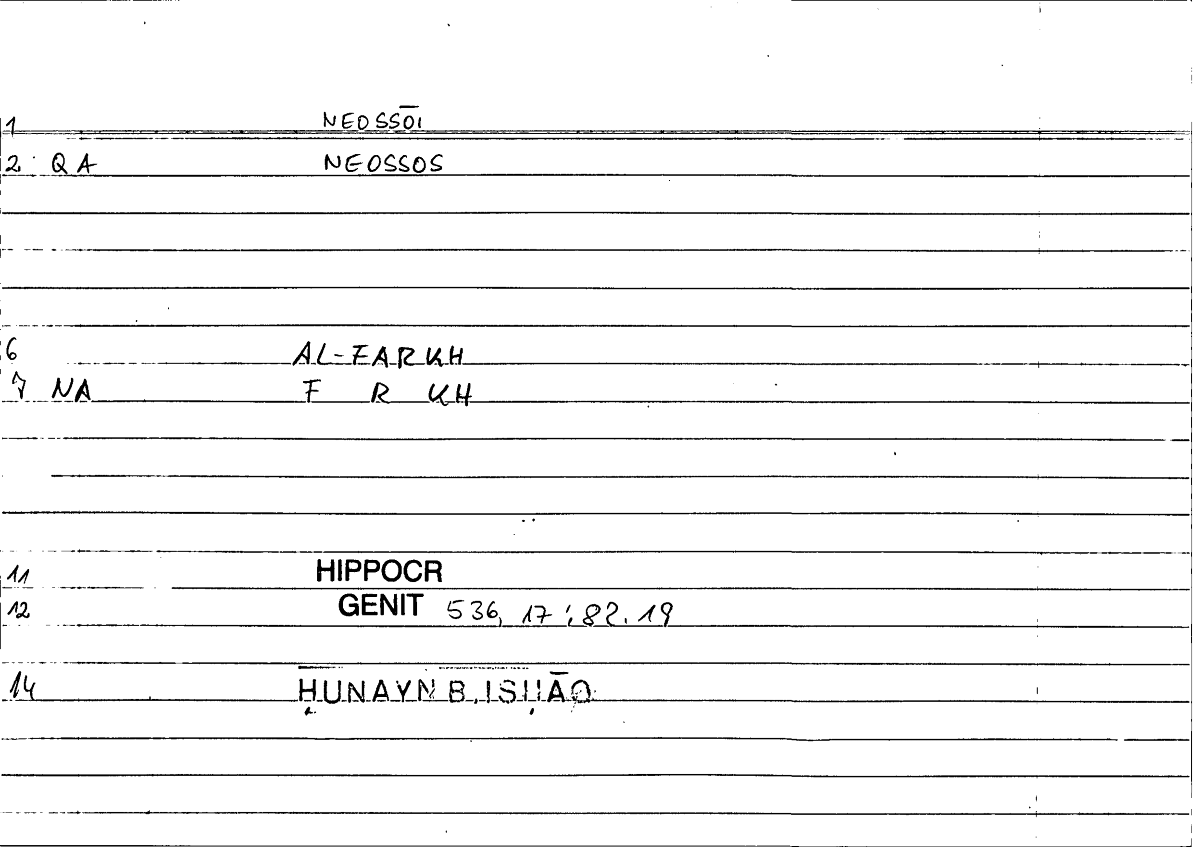 1 NEOSSŌI
2 QA NEOSSOS
6 AL-FARKH
7 NA F R KH
11 HIPPOCR
12 GENIT 536, 17 ; 82. 19
14 ḤUNAYN B. ISḤĀQ